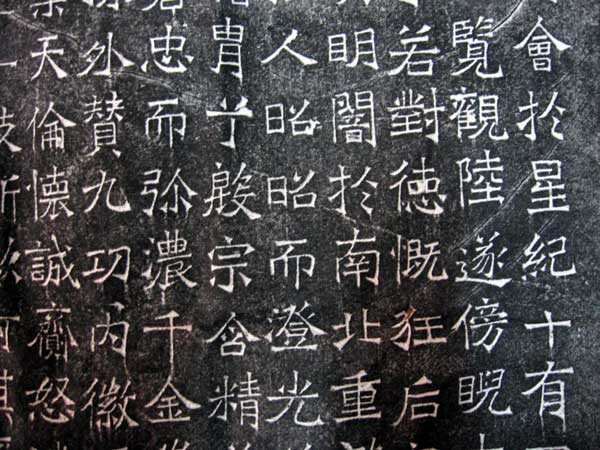 會於星紀十有
覽觀陸遂傍睨
若對徳慨狂后
明闇於南北重
人昭昭而澄光
胄乎殷宗含精
忠而弥濃千金
外賛九功内徽
天倫懐誠齌怒